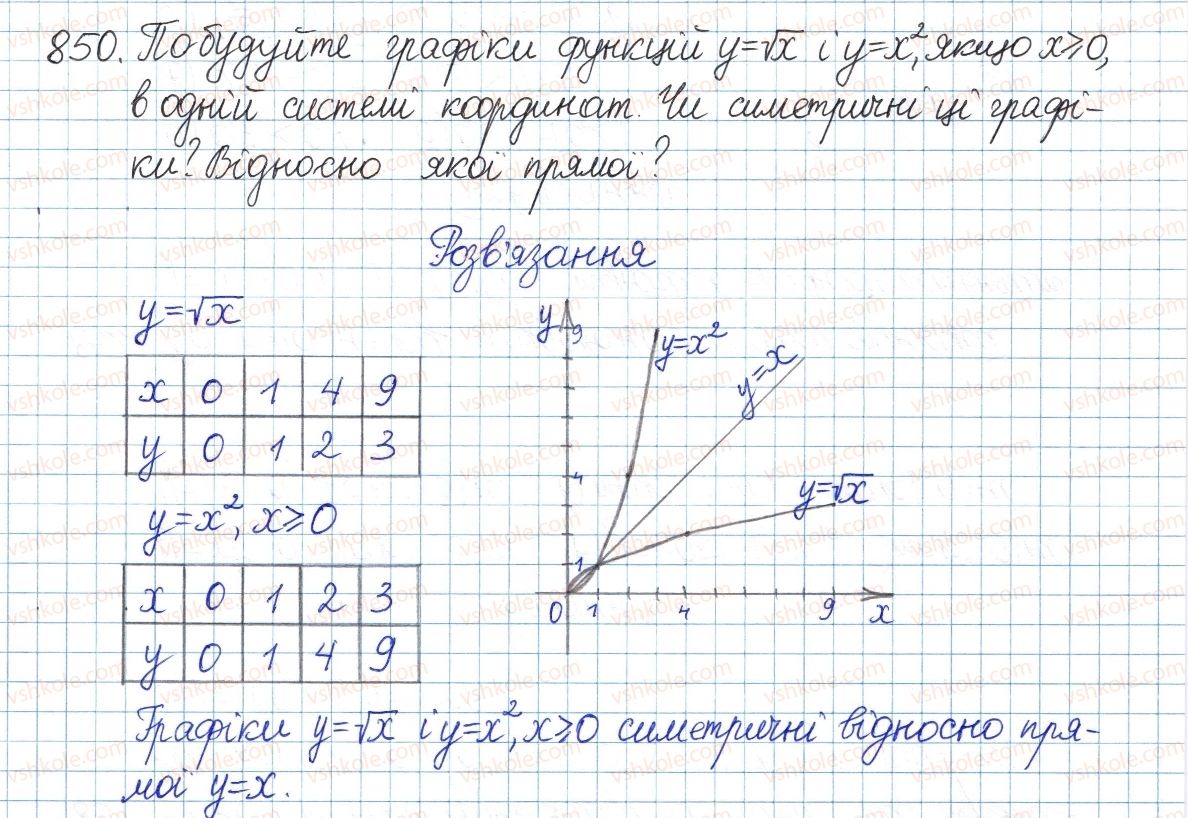 850. Побудуйте графіки функцій y=√x і y=x², якщо x≥0,
в одній системі координат. Чи симетричні ці графі-
ки? Відносно якої прямої?
Розв'язання
y=√x
x 0 1 4 9
y 0 1 2 3
y=x², x≥0
x 0 1 2 3
y 0 1 4 9
y
9
y=x²
y=x
4
y=√x
1
0 1 4 9 x
Графіки y=√x і y=x², x≥0 симетричні відносно пря-
мої y=x.
vshkole.com